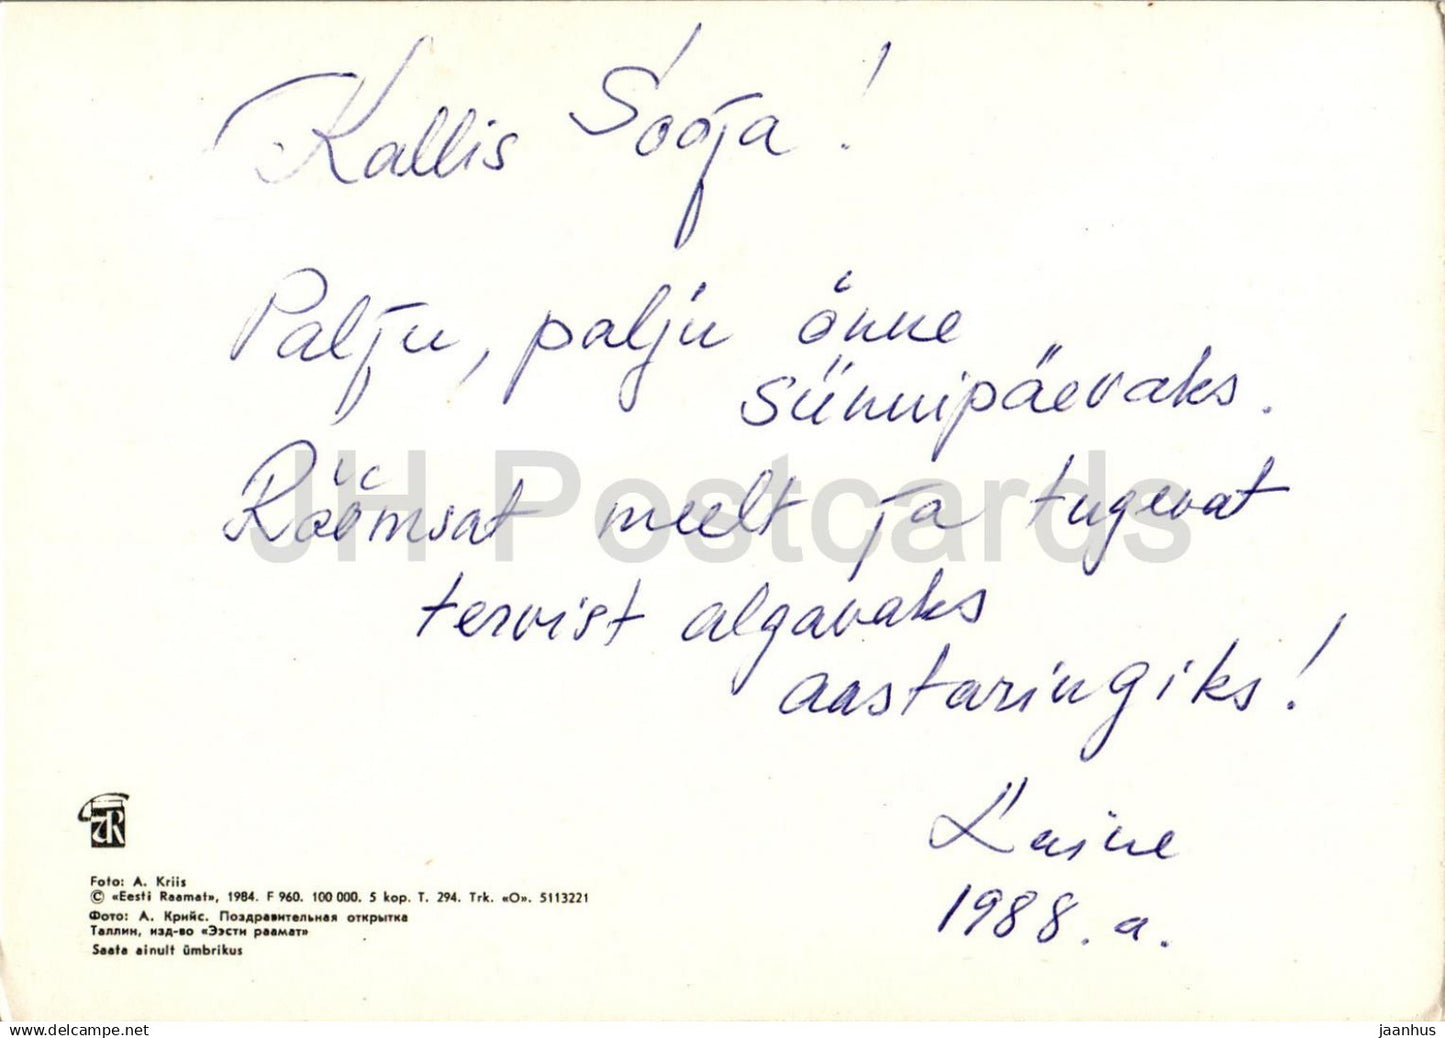 Kallis Sooja!
Palju, palju õnne
sünnipäevaks.
Rõõmsat meelt ja tugevat
tervist algavaks
aastaringiks!
Laine
1988. a.
JH Postcards
Foto: A. Kriis
© «Eesti Raamat», 1984. F 960. 100 000. 5 kop. T. 294. Trk. «O». 5113221
Фото: А. Крийс. Поздравительная открытка
Таллин, изд-во «Ээсти раамат»
Saata ainult ümbrikus
www.delcampe.net
jaanhus